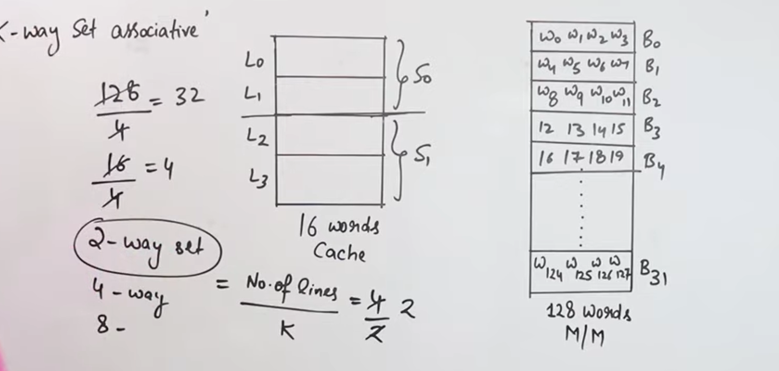 K-way Set associative'
128/4 = 32
16/4 = 4
2-way set
4-way
8-
L0
L1
L2
L3
S0
S1
16 words
Cache
= No. of lines / K = 4/2 2
W0 W1 W2 W3 B0
W4 W5 W6 W7 B1
W8 W9 W10 W11 B2
12 13 14 15 B3
16 17 18 19 B4
W124 W125 W126 W127 B31
128 words
M/M